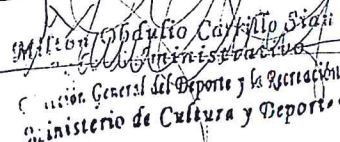 Milton Obdulio Carrillo Sian
Administrativo
General del Deporte y la Recreación
Ministerio de Cultura y Deportes